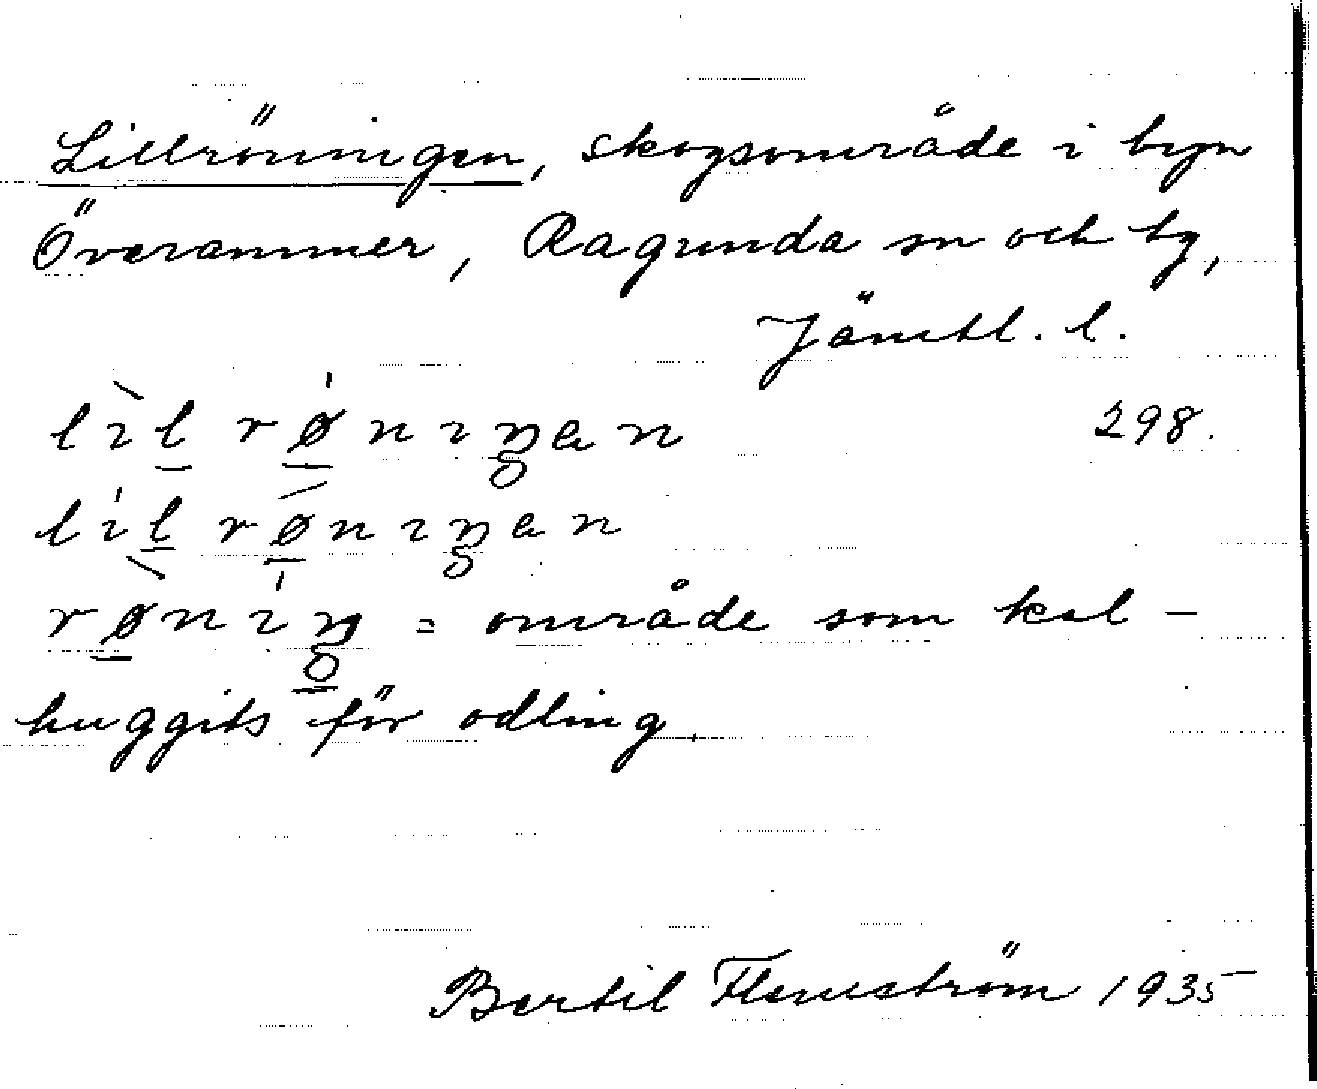 Lillröningen, skogsområde i byn
Överammer, Ragunda sn och tg,
Jämtl. l.
lìl røníŋan 298.
líl rønıŋan
rønıŋ = område som kal-
huggits för odling.
Bertil Flemström 1935